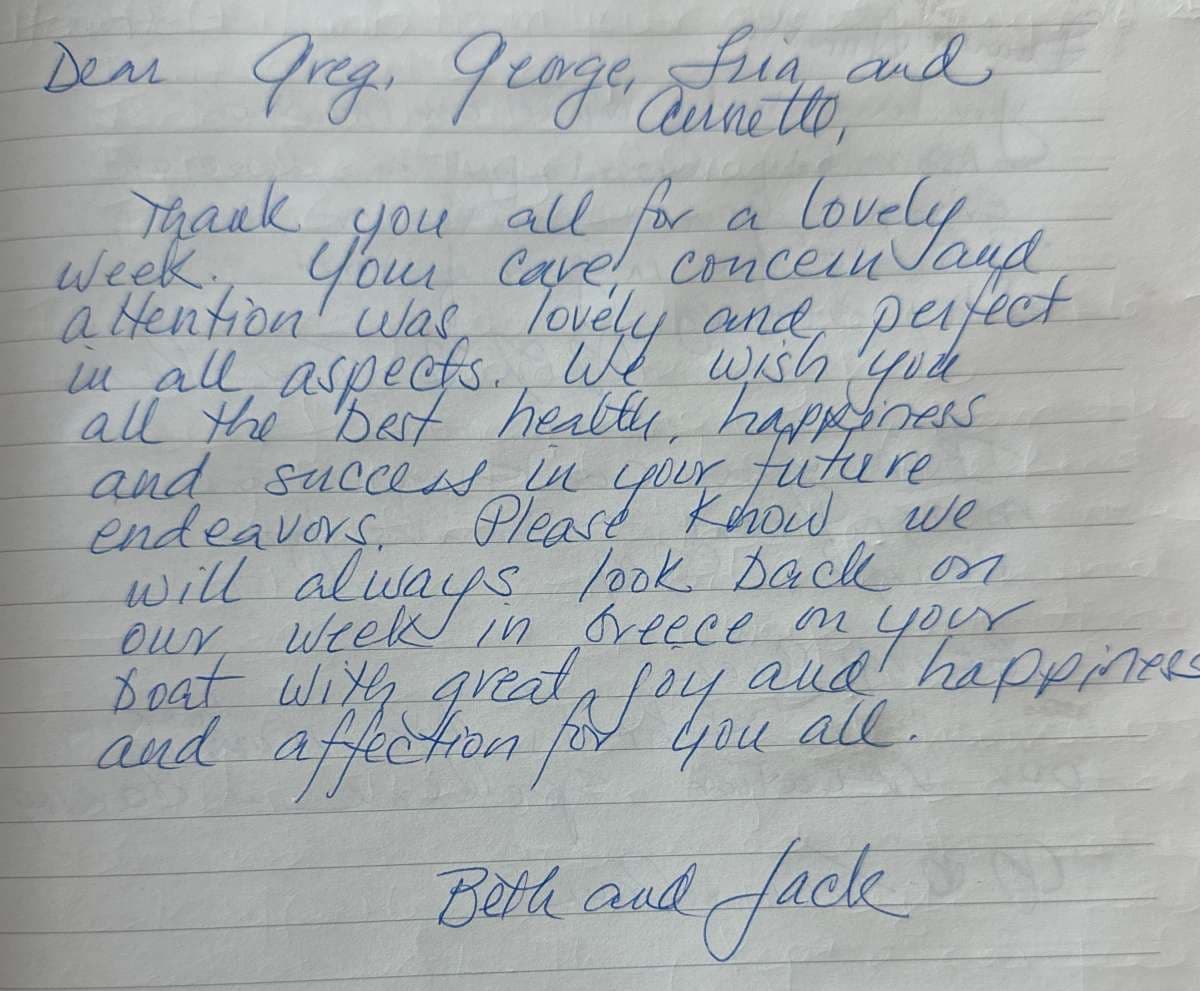 Dear Greg, George, Iria and
Annette,
Thank you all for a lovely
week. Your care, concern and
attention was lovely and perfect
in all aspects. We wish you
all the best health, happiness
and success in your future
endeavors. Please know we
will always look back on
our week in Greece on your
boat with great joy and happiness
and affection for you all.
Beth and Jack